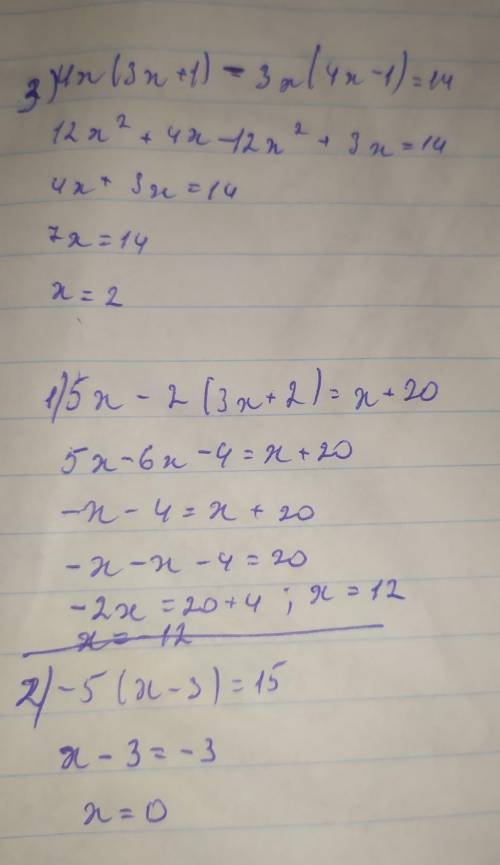 3) 4x(3x+1) - 3x(4x-1)=14
12x² + 4x-12x² + 3x=14
4x+ 3x=14
7x=14
x=2
1) 5x - 2(3x+2)=x+20
5x-6x-4=x+20
-x-4=x+20
-x-x-4=20
-2x=20+4; x=12
x=-12
2) -5(x-3)=15
x-3=-3
x=0